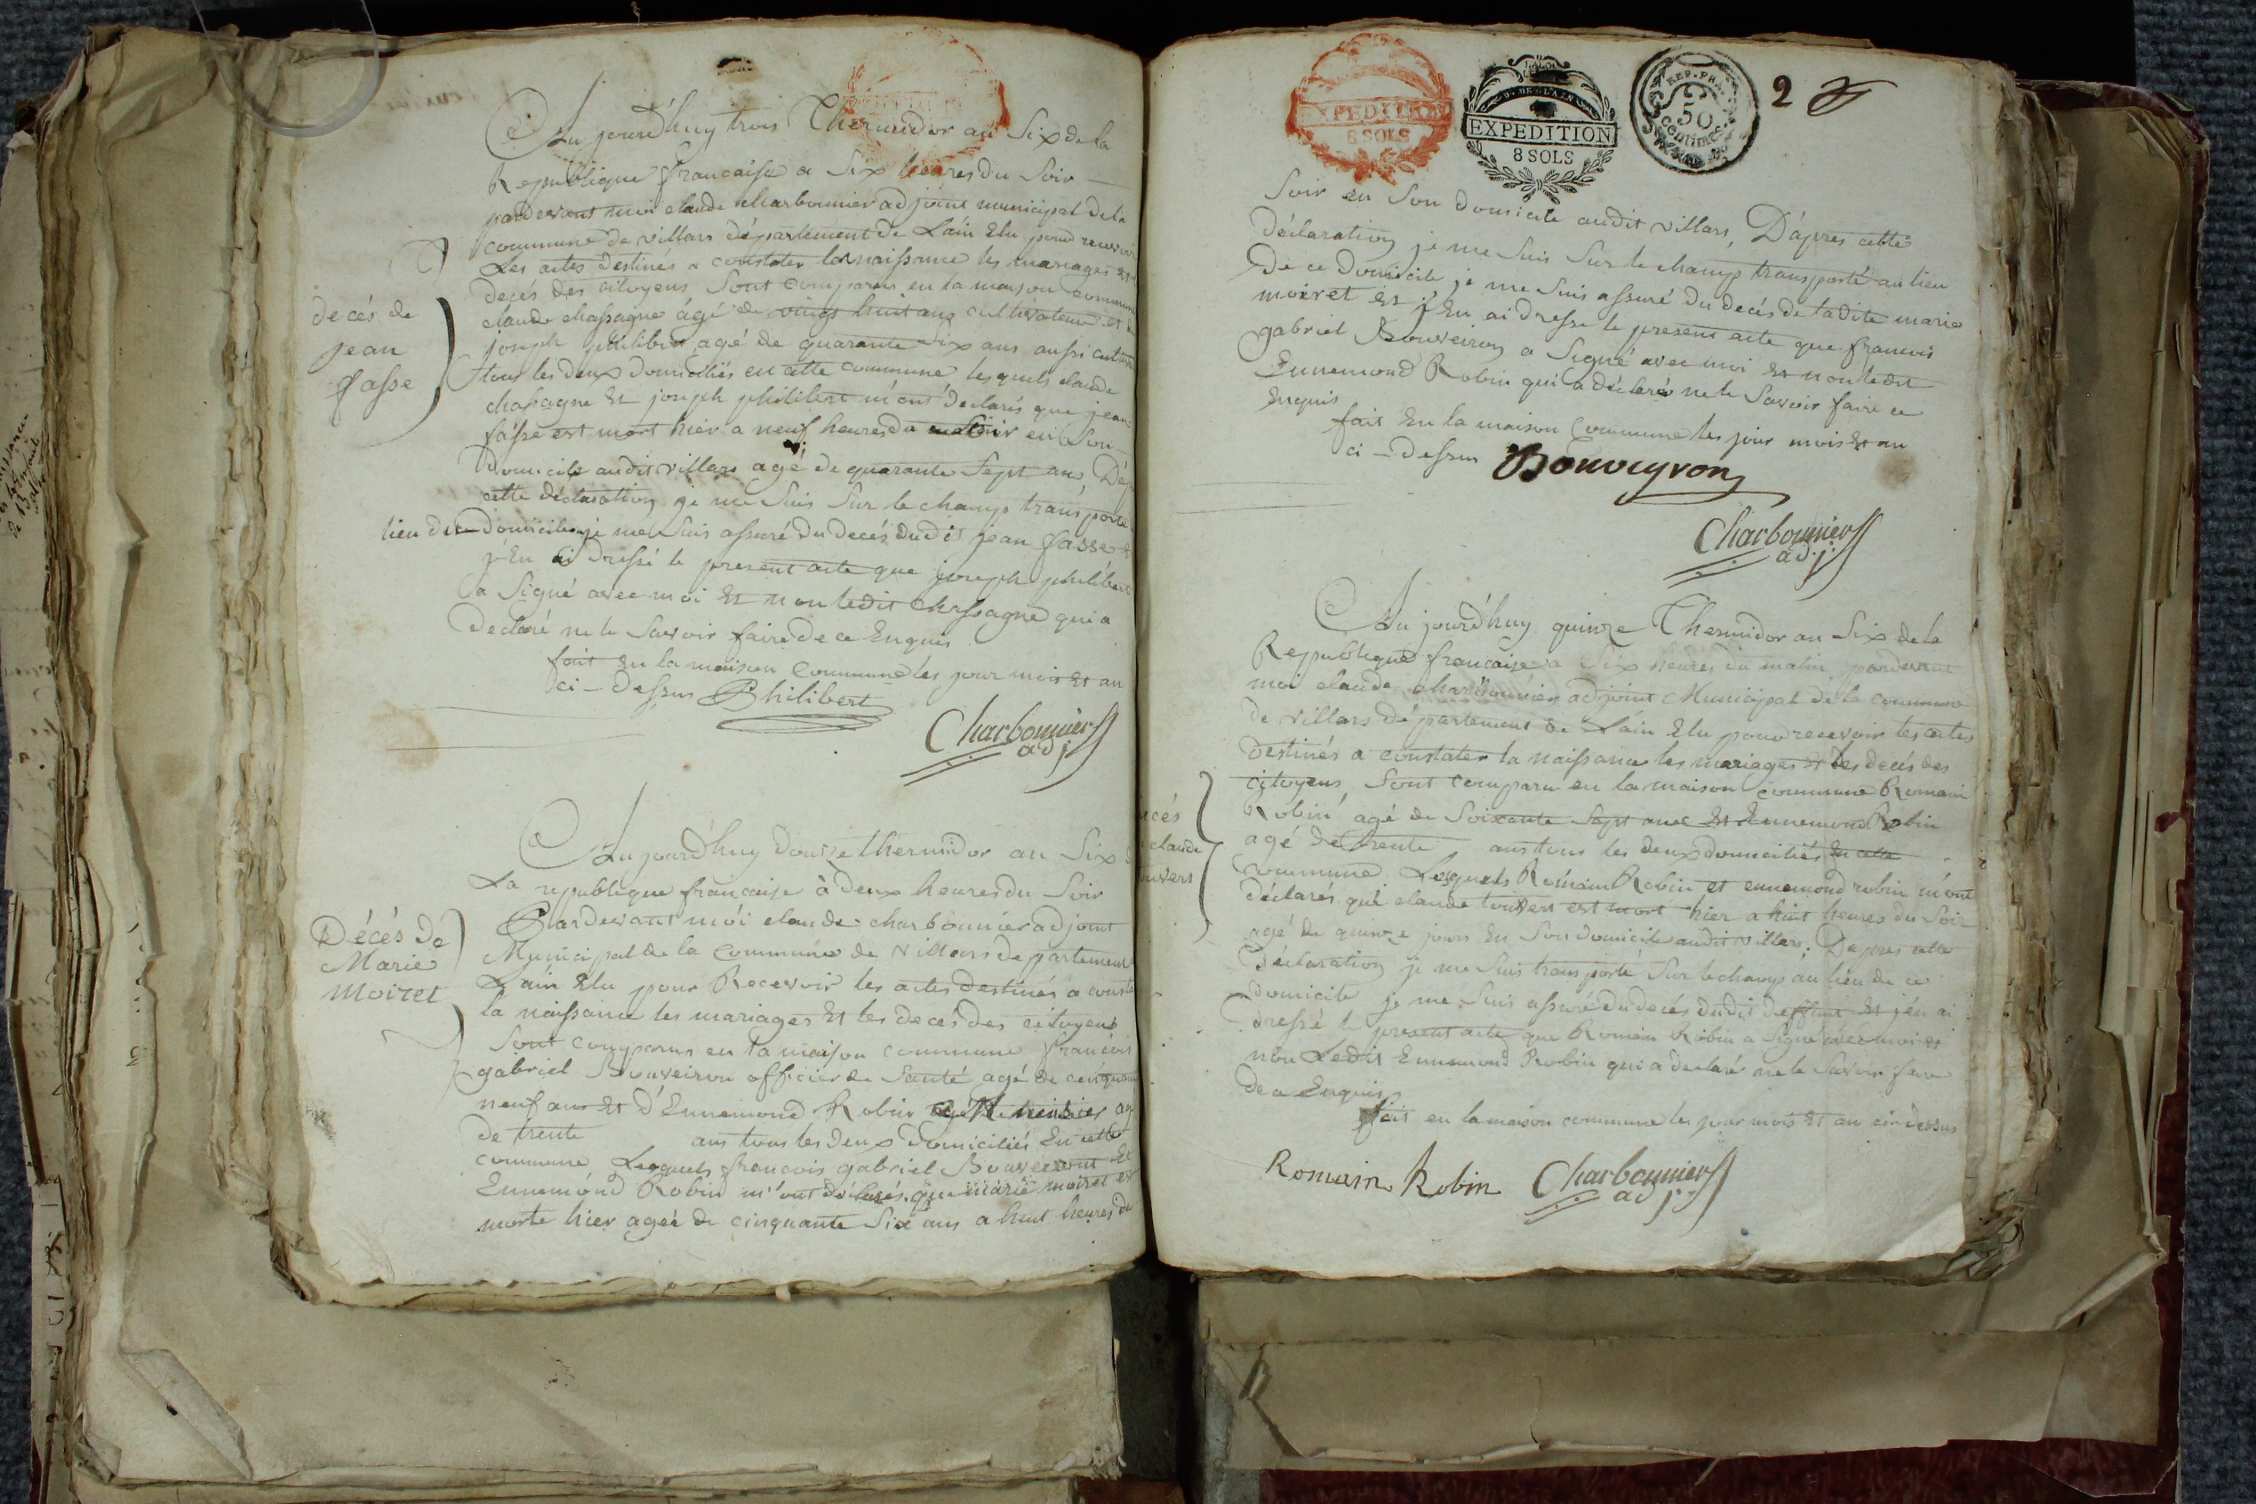 Aujourd'huy trois Thermidor an Six de la
Republique francaise a Six heures du Soir
pardevant moi claude charbonnier adjoint municipal de la
commune de villars département de Lain Elu pour recevoir
Les actes destinés a constater la naissance les mariages et
decés des citoyens Sont comparus en la maison commune
claude chassagne agé de vingt huit ans cultivateur et
joseph philibert agé de quarante Six ans aussi
tous les deux domiciliés en cette commune lesquels claude
chassagne Et joseph philibert m'ont declarés que jean
fasse est mort hier a neuf heures du Soir en Son
Domicile audit villars agé de quarante Sept ans,
cette déclaration je me Suis Sur le champ transporté
lieu de ce domicile je me Suis assuré du decés dudit jean fasse
j'En ai dressé le present acte que joseph philibert
a Signé avec moi Et non ledit chassagne qui a
declaré ne le Savoir faire de ce Enquis
fait En la maison commune les jour mois Et an
ci-dessus Philibert
Charbonnier
adj
decés de
jean
fasse
Aujourd'huy douze thermidor an Six
La republique francaise à deux heures du Soir
Pardevant moi claude charbonnier adjoint
Municipal de la commune de villars departement
L'ain Elu pour Recevoir les actes destinés a
la naissance les mariages Et les deces des citoyens
Sont comparus en la maison commune francois
gabriel Bouveiron officier de Santé agé de
neuf ans Et d'Ennemond Robin
de trente ans tous les deux domiciliés En cette
commune Lesquels francois gabriel Bouveiront Et
Ennemond Robin m'ont déclarés que marie moiret est
morte hier ageé de cinquante Six ans a huit heures du
Décés de
Marie
Moiret
2
EXPEDITION
8 SOLS
EXPEDITION
8 SOLS
REP. FRA.
50
centimes
Soir en Son domicile audit villars, D'apres cette
déclaration je me Suis Sur le champ transporté au lieu
de ce domicile je me Suis assuré du decés de ladite marie
moiret Et j'En ai dresse le present acte que francois
gabriel Bouveiron a Signé avec moi Et non ledit
Ennemond Robin qui a déclaré ne le Savoir faire ce
Enquis
fait En la maison commune les jour mois Et an
ci-dessus Bouveyron
Charbonnier
adj.
Aujourd'huy quinze Thermidor an Six de la
Republique francaise a Six heures du matin pardevant
moi claude charbonnier adjoint Municipal de la commune
de villars département de Lain Elu pour recevoir les actes
destinés a constater la naissance les mariages et les decés des
citoyens, Sont comparu en la maison commune Romain
Robin agé de Soixante Sept ans et Ennemond Robin
agé de trente ans tous les deux domiciliés En cette
commune Lesquels Romain Robin et ennemond robin m'ont
déclarés que claude touvert est mort hier a huit heures du Soir
agé de quinze jours En Son domicile audit villars; Dapres cette
Déclaration je me Suis transporté Sur le champ au lieu de ce
domicile je me Suis assuré du decés dudit deffunt Et j'en ai
dressé le present acte que Romain Robin a Signé avec moi et
non Ledit Ennemond Robin qui a declaré ne le Savoir faire
de ce Enquis
fait en la maison commune les jour mois et an ci-dessus
Romain Robin Charbonnier
adj.
claude